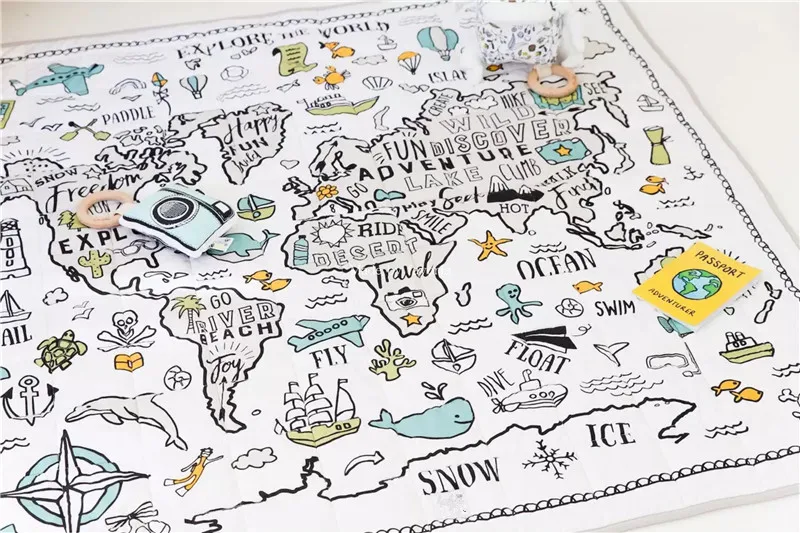 EXPLORE THE WORLD
ISLA
PADDLE
Happy
FUN
Wild
SNOW
Freedom
EXPL
HIKE
SEE
WILD
FUN DISCOVER
ADVENTURE
LAKE
CLIMB
GO
Seek
SMILE
HOT
RIDE
DESERT
Travel
OCEAN
PASSPORT
ADVENTURER
SWIM
GO
RIVER
BEACH
Joy
AIL
FLY
FLOAT
DIVE
SNOW
ICE